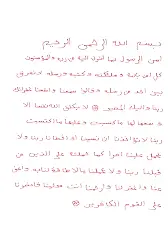 بسم الله الرحمن الرحيم
امن الرسول بما انزل اليه من ربه والمؤمنون
كل امن بالله وملئكته وكتبه ورسله لا نفرق
بين احد من رسله وقالوا سمعنا واطعنا غفرانك
ربنا واليك المصير لا يكلف الله نفسا الا
وسعها لها ما كسبت وعليها ما اكتسبت
ربنا لا تؤاخذنا ان نسينا او اخطانا ربنا ولا
تحمل علينا اصرا كما حملته على الذين من
قبلنا ربنا ولا تحملنا ما لا طاقة لنا به واعف
عنا واغفر لنا وارحمنا انت مولينا فانصرنا
على القوم الكافرين